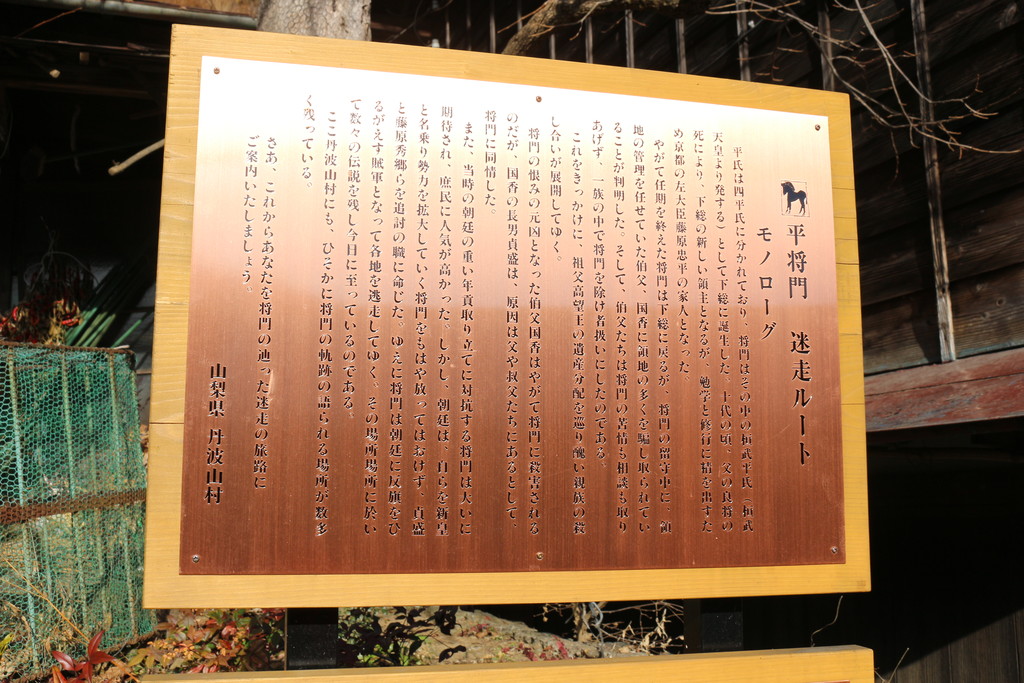 平将門　迷走ルート
モノローグ
平氏は四平氏に分かれており、将門はその中の桓武平氏（桓武
天皇より発する）として下総に誕生した。十代の頃、父の良将の
死により、下総の新しい領主となるが、勉学と修行に精を出すた
め京都の左大臣藤原忠平の家人となった。
やがて任期を終えた将門は下総に戻るが、将門の留守中に、領
地の管理を任せていた伯父、国香に領地の多くを騙し取られてい
ることが判明した。そして、伯父たちは将門の苦情も相談も取り
あげず、一族の中で将門を除け者扱いにしたのである。
これをきっかけに、祖父高望王の遺産分配を巡り醜い親族の殺
し合いが展開してゆく。
将門の恨みの元凶となった伯父国香はやがて将門に殺害される
のだが、国香の長男貞盛は、原因は父や叔父たちにあるとして、
将門に同情した。
また、当時の朝廷の重い年貢取り立てに対抗する将門は大いに
期待され、庶民に人気が高かった。しかし、朝廷は、自らを新皇
と名乗り勢力を拡大していく将門をもはや放ってはおけず、貞盛
と藤原秀郷らを追討の職に命じた。ゆえに将門は朝廷に反旗をひ
るがえす賊軍となって各地を逃走してゆく、その場所場所に於い
て数々の伝説を残し今日に至っているのである。
ここ丹波山村にも、ひそかに将門の軌跡の語られる場所が数多
く残っている。
さあ、これからあなたを将門の辿った迷走の旅路に
ご案内いたしましょう。
山梨県 丹波山村